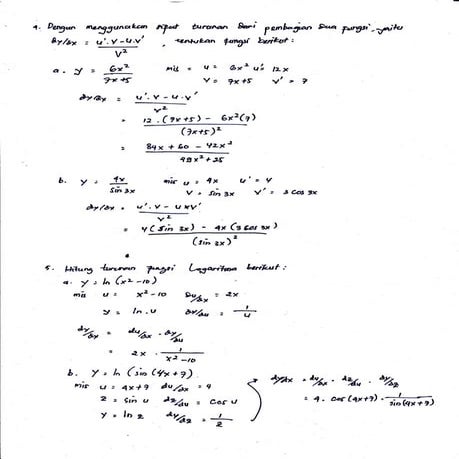 4. Dengan menggunakan sifat turunan dari pembagian dua fungsi, yaitu
dy/dx = u'.v - u.v' / v² , tentukan fungsi berikut:
a. y = 6x² / 7x+5 mis = u = 6x² u' = 12x
v = 7x+5 v' = 7
dy/dx = u'.v - u.v' / v²
= 12 . (7x+5) - 6x²(7) / (7x+5)²
= 84x + 60 - 42x² / 49x² + 25
b. y = 4x / sin 3x mis u = 4x u' = 4
v = sin 3x v' = 3 cos 3x
dy/dx = u'.v - u x v' / v²
= 4(sin 3x) - 4x (3 cos 3x) / (sin 3x)²
5. Hitung turunan fungsi Logaritma berikut:
a. y = ln (x² - 10)
mis u = x² - 10 du/dx = 2x
y = ln . u dy/du = 1/u
dy/dx = du/dx . dy/du
= 2x . 1 / x² - 10
b. y = ln (sin (4x + 7)
mis u = 4x + 7 du/dx = 4
z = sin u dz/du = cos u
y = ln z dy/dz = 1/z
dy/dx = du/dx . dz/du . dy/dz
= 4 . cos (4x+7) . 1 / sin (4x + 7)